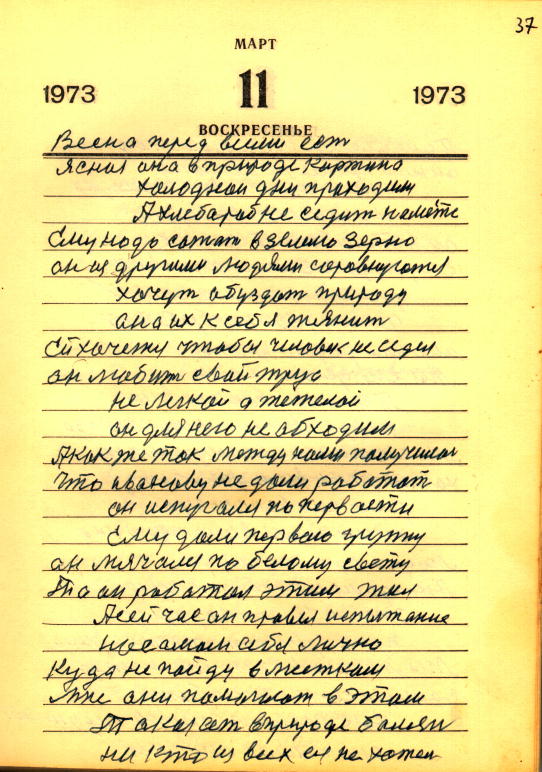 37
МАРТ
1973 11 1973
ВОСКРЕСЕНЬЕ
Весна перед всеми ест
Ясная она в природе картина
Холоднои дни проходим
А хлебароб не седит
Ему нодо сажат в землю зерно
он из другими людями
хотут обуздат природу
она их к себя тянит
Ей хочетя чтобы человек не седел
он любит свой труд
не легкой а тежелой
он для него необходим
А как же так между нами получилас
Что иванову не дали работат
он испугался по первости
Ему дали первою группу
он мячался по белому свету
То он работал этим жил
А сей час он провел испытание
на самом себя лично
Куда не пойду в
мне они помогают в этом
Такая ест в природе
ни кто из всех ея не хотел